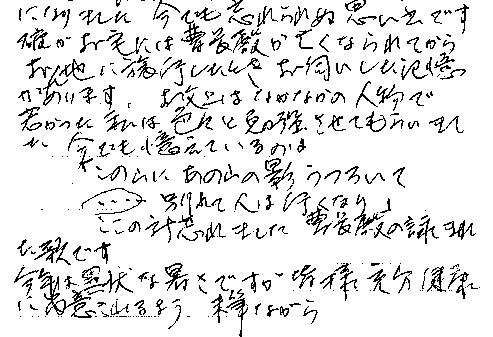 になりました 今でも忘れられぬ思い出です
確かお宅には曹長殿が亡くなられてから
お地に旅行したときお伺いした記憶
があります、お父上はなかなかの人物で
若かった私は色々と勉強させてもらいまし
た 今でも憶えているのは
この山にあの山の影うつろいて
(…) 別れて人は行くなり」
ここの計忘れました 曹長殿の詠まれ
た歌です
今年は異状な暑さですが皆様充分健康
に留意されるよう 末筆ながら